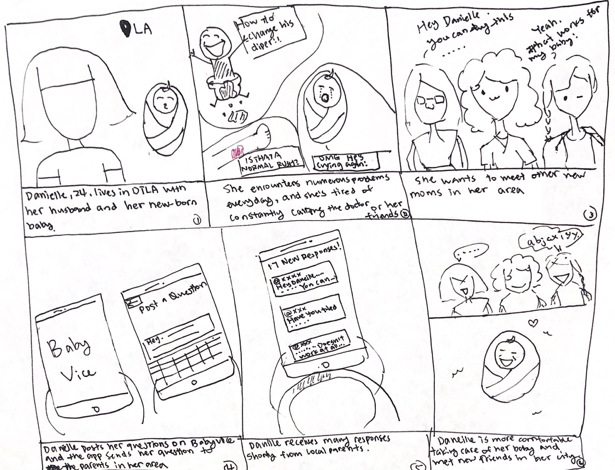 LA
Danielle, 24, lives in DTLA with
her husband and her new-born
baby.
1
How to
change his
diper!!
IS THAT A
NORMAL RUSH?
OMG HE'S
crying again!
She encounters numerous problems
everyday, and she's tired of
constantly calling the doctor or her
friends
2
Hey Danielle.
you can try this
.....
Yeah.
that works for
my baby!
She wants to meet other new
moms in her area
3
Baby
Vice
Post a Question
Hey..
Danielle posts her questions on Babyvice
and the app sends her question to
the parents in her area
4
17 New Responses!
@xxxx
Hey Danielle....
.... You can...
@xxx
Have you tried
.....
@xxx
..... Doesn't
work at al...
Danille receives many responses
shortly from local parents.
5
.....
abjcxiyy
Danielle is more comfortable
taking care of her baby and
met new friends in her city
6